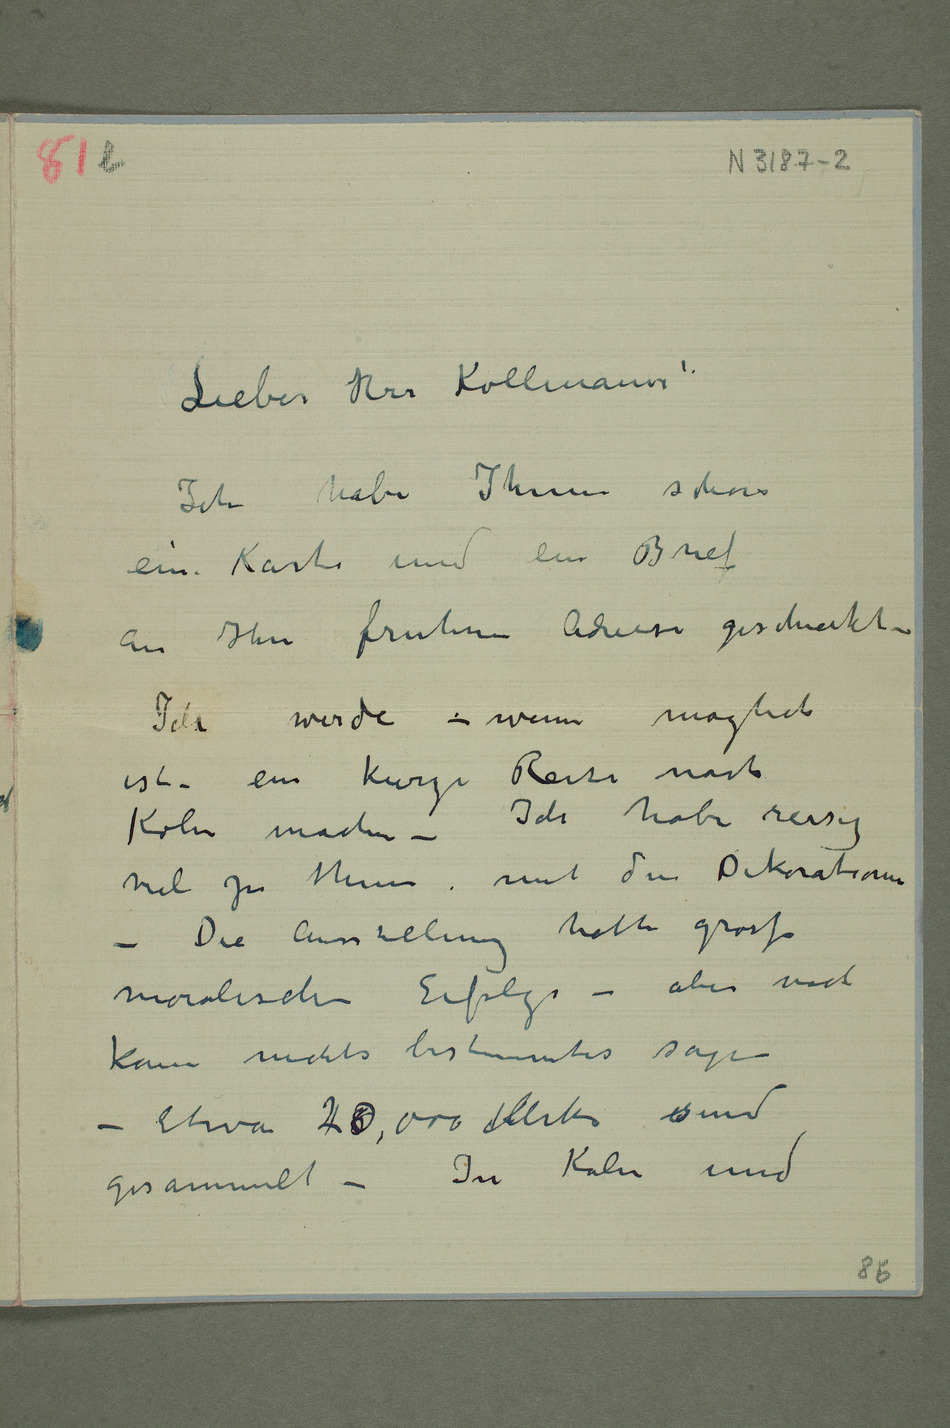 81 b
N 3187-2
Lieber Herr Kollmann!
Ich habe Ihnen schon
ein Karte und ein Brief
an Ihre fruhere Adresse geschickt –
Ich werde – wenn moglich
ist – ein kurze Reise nach
Köln machen – Ich habe
viel zu thun mit den Dekorationen
– Die Ausstellung hatte grosse
moralischen Erfolge – aber noch
kann nichts bestimmtes sagen
– Etwa 20,000 Mrk sind
gesammelt – In Köln und
86